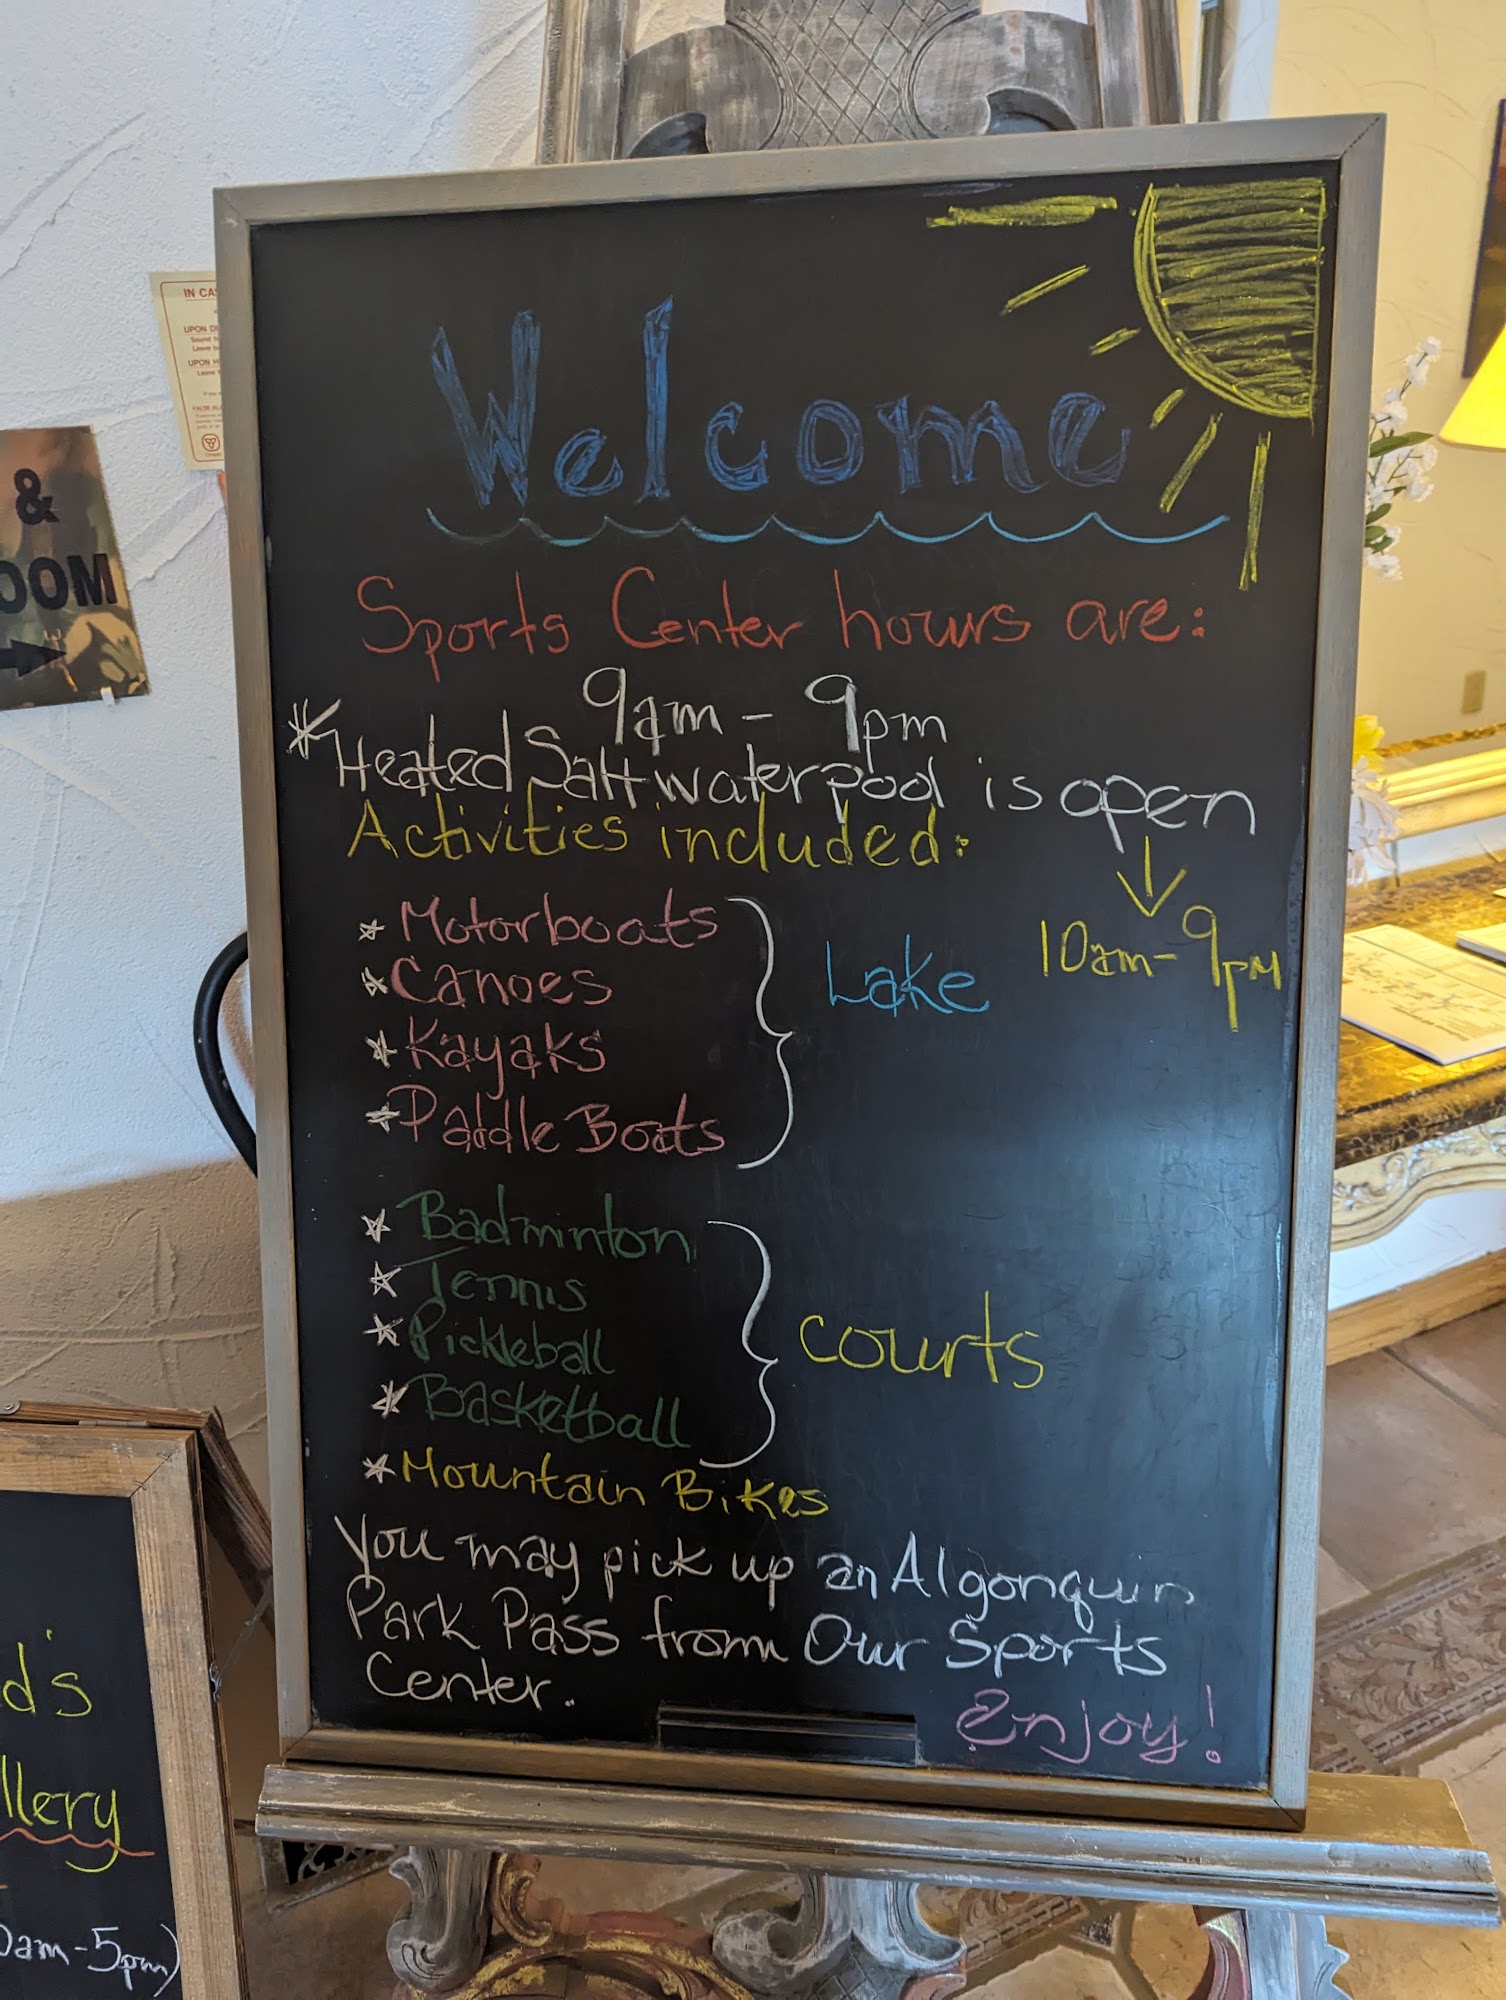 Welcome
Sports Center hours are:
9am - 9pm
*Heated Saltwater pool is open
10am-9pm
Activities included:
* Motorboats
* Canoes
* Kayaks
* Paddle Boats
Lake
* Badminton
* Tennis
* Pickleball
* Basketball
courts
* Mountain Bikes
You may pick up an Algonquin
Park Pass from Our Sports
Center.
Enjoy!
IN CA
UPON
UPON
&
OOM
d's
llery
0am-5pm)